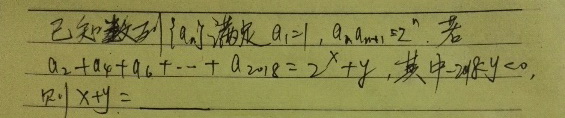 已知数列{aₙ}满足 a₁=1, aₙaₙ₊₁=2ⁿ. 若
a₂+a₄+a₆+···+a₂₀₁₈=2ˣ+y, 其中-2018<y<0,
则 x+y=______